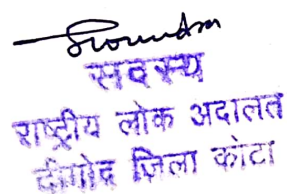 सदस्य
राष्ट्रीय लोक अदालत
दीगोद ज़िला कोटा